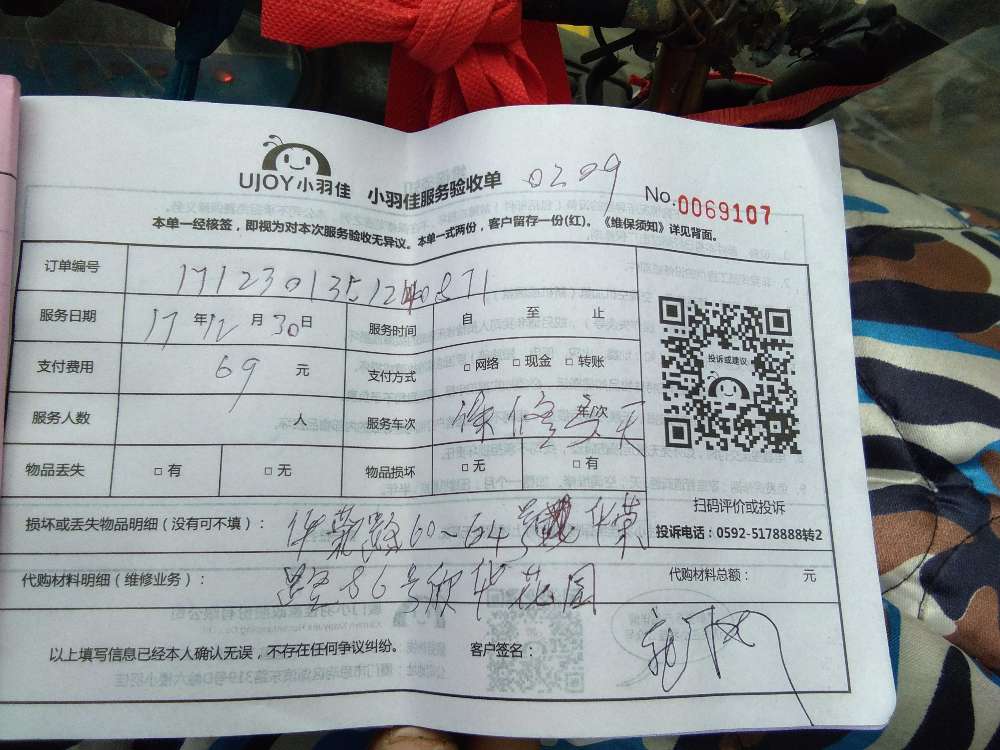 UJOY小羽佳 小羽佳服务验收单 0209
No.0069107
本单一经核签，即视为对本次服务验收无异议。本单一式两份，客户留存一份(红)。《维保须知》详见背面。
订单编号
服务日期 17 年 12 月 30 日 服务时间 自 至 止
支付费用 69 元 支付方式 □ 网络 □ 现金 □ 转账
投诉或建议
服务人数 人 服务车次 车次
物品丢失 □ 有 □ 无 物品损坏 □ 无 □ 有
扫码评价或投诉
损坏或丢失物品明细（没有可不填）： 华荣路60~64号 华荣
投诉电话：0592-5178888转2
代购材料明细（维修业务）： 路86号欣华花园 代购材料总额： 元
以上填写信息已经本人确认无误，不存在任何争议纠纷。 客户签名：